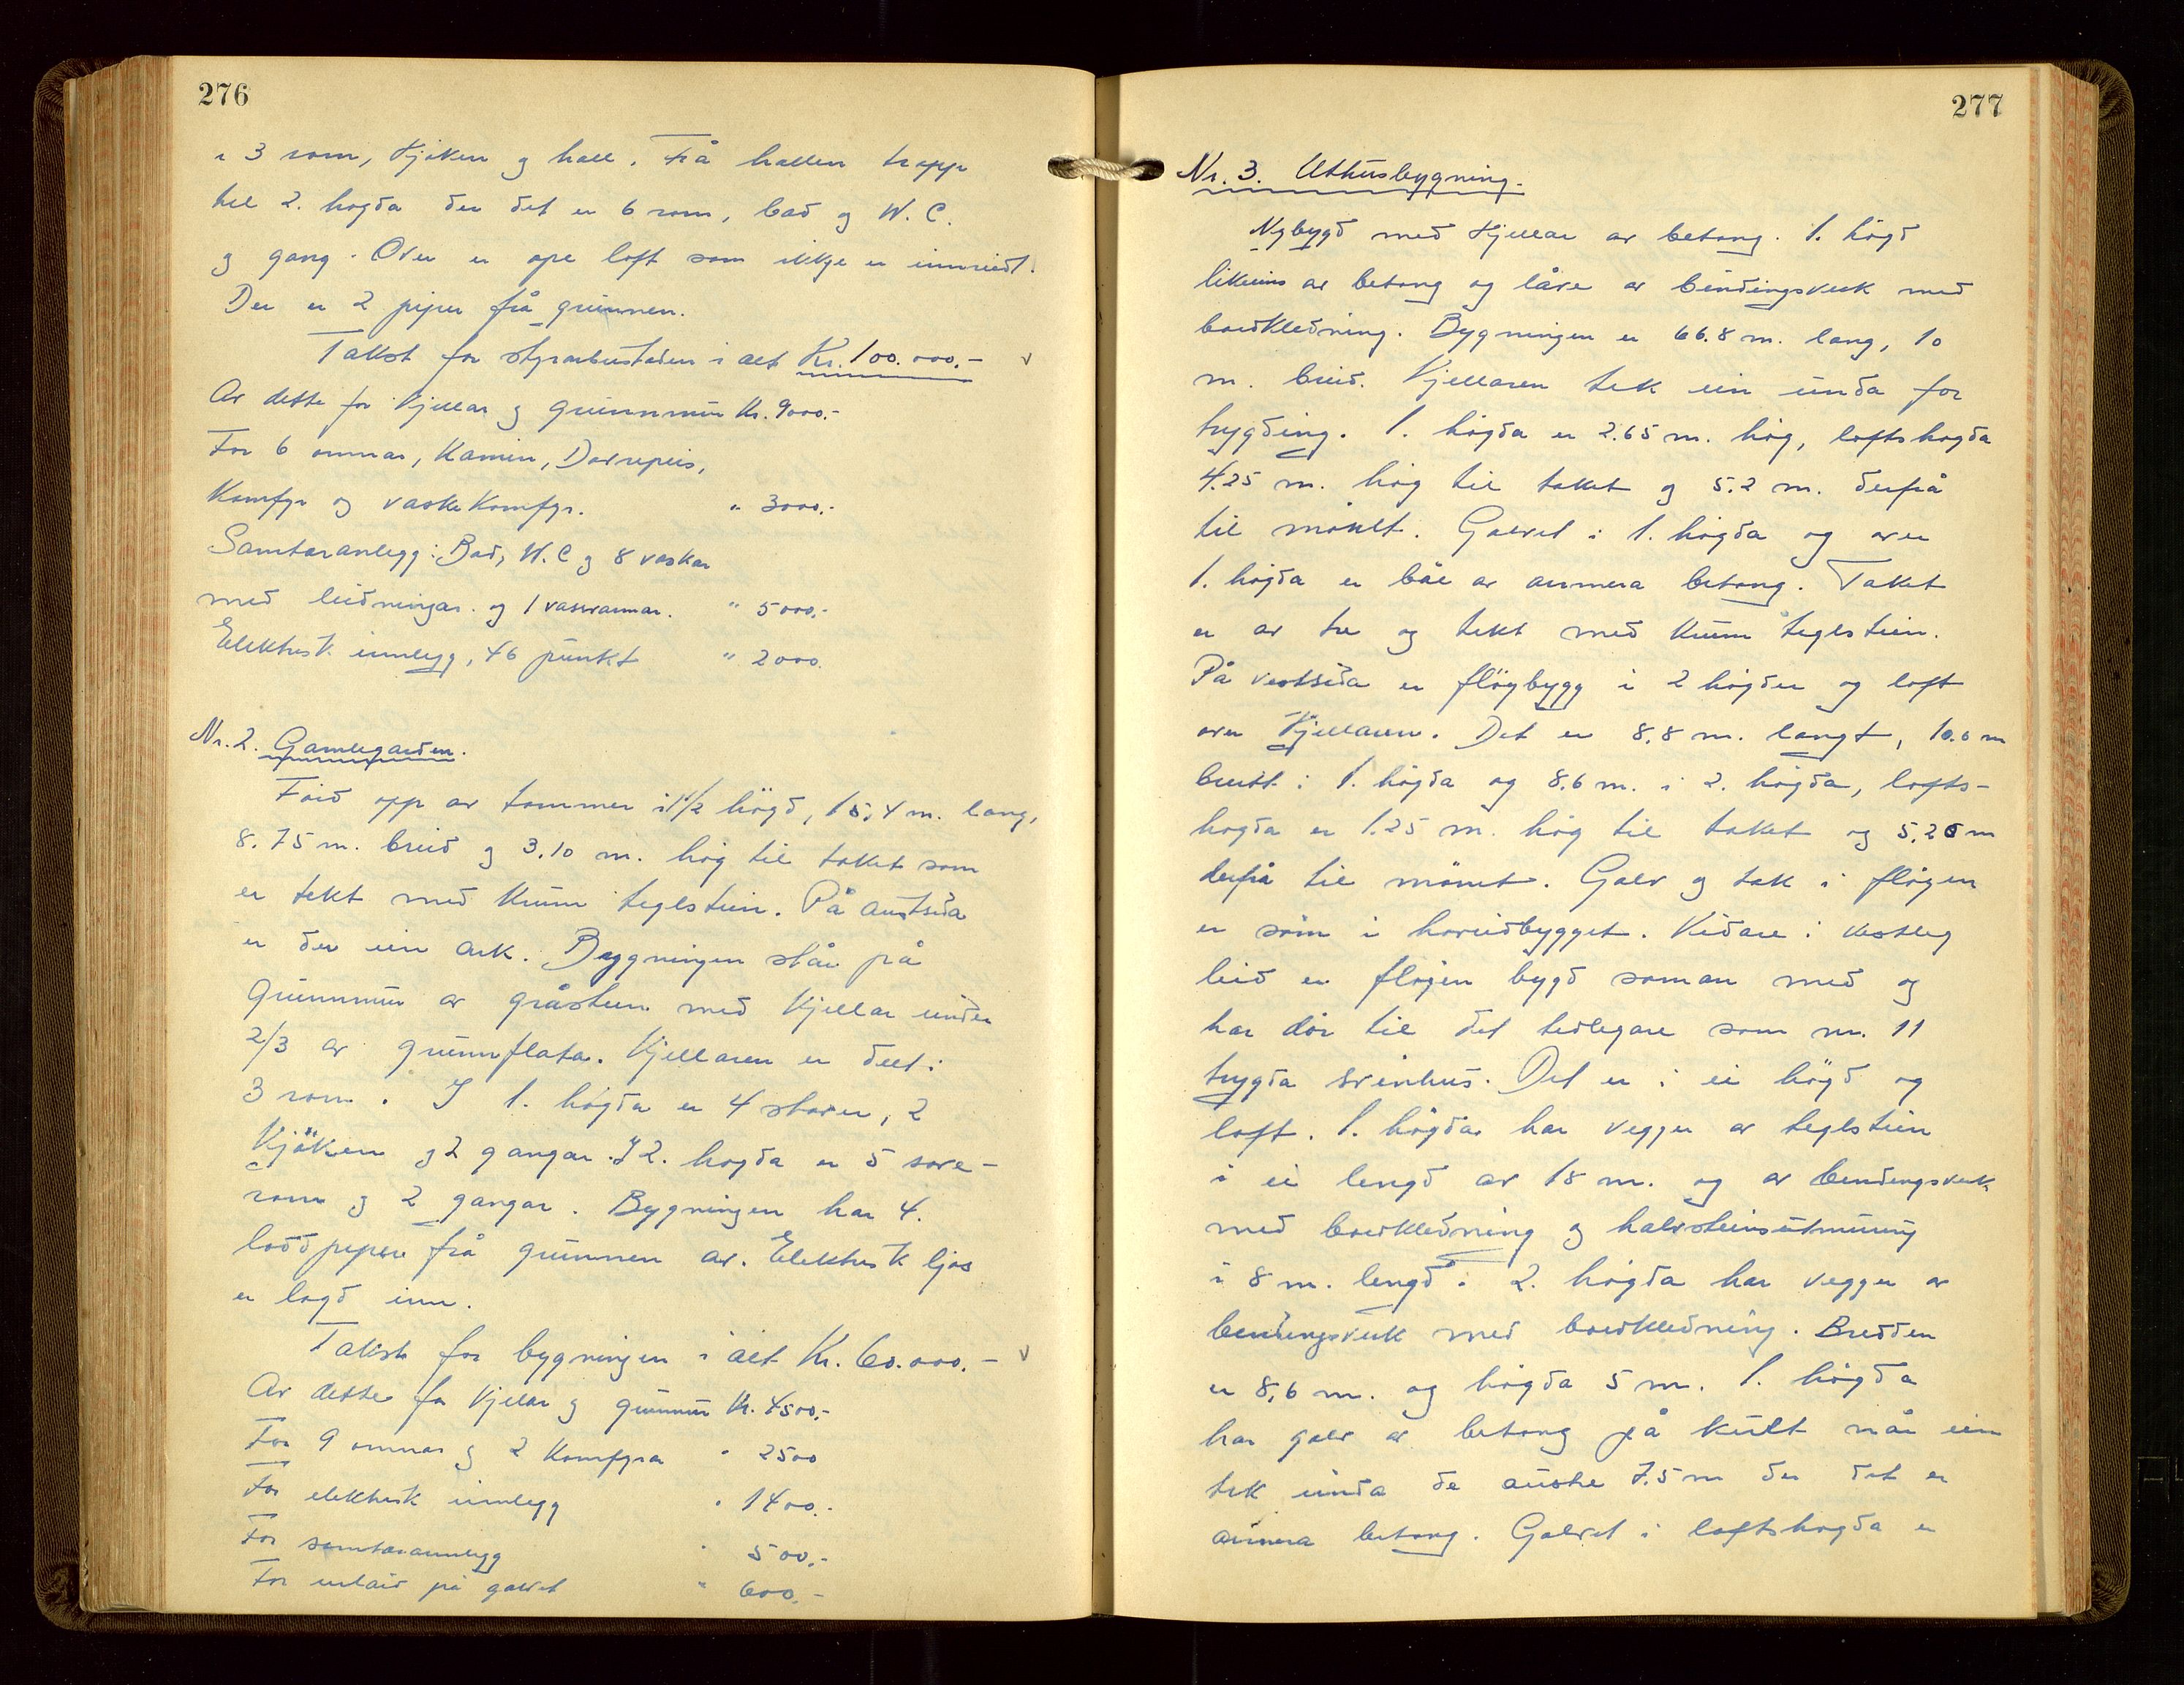 276
i 3 rom, kjøken og hall. Frå hallen trapp
til 2. høgda der det er 6 rom, bad og W. C.
og gang. Over er ope loft som ikkje er innreidt.
Der er 2 piper frå grunnen.
Takst for styrarbustaden i alt Kr. 100.000.-
Av dette for kjellar og grunnmur Kr. 9000.-
For 6 omnar, Kamin, Dovrepeis,
Komfyr og vaskekomfyr. " 3000.-
Sanitæranlegg: Bad, W. C og 8 vaskar
med leidningar og 1 vassvarmar. " 5000.-
Elektrisk innlegg, 46 punkt " 2000.
Nr. 2. Gamlegarden.
Førd opp av tømmer i 1 1/2 högd, 15,4 m. lang,
8.75 m. breid og 3.10 m. høg til taket som
er tekt med krum teglstein. På austsida
er der ein ark. Bygningen står på
grunnmur av gråstein med kjellar under
2/3 av grunnflata. Kjellaren er delt i
3 rom. I 1. høgda er 4 stover, 2
Kjöken og 2 gangar. I 2. høgda er 5 sove-
rom og 2 gangar. Bygningen har 4.
loddpiper frå grunnen av. Elektrisk ljos
er lagd inn.
Takst for bygningen i alt Kr. 60.000.-
Av dette for kjellar og grunnmur Kr. 4500.-
For 9 omnar og 2 Komfyrar " 2500
For elektrisk innlegg " 1400.-
For sanitæranlegg " 500.-
For på golvet " 600.-
277
Nr. 3. Uthusbygning.
Nybygd med kjellar av betong. 1. högd
likeins av betong og låve av bindingsverk med
bordkledning. Bygningen er 66.8 m. lang, 10
m. breid. Kjellaren tek ein unda for
trygding. 1. høgda er 2.65 m. høg, loftshøgda
4.25 m. høg til taket og 5.2 m. derfrå
til mønet. Golvet i 1. høgda og over
1. høgda er båe av armera betong. Taket
er av tre og tekt med krum teglstein.
På vestsida er fløybygg i 2 høgder og loft
over kjellaren. Det er 8,8 m. langt, 10.0 m
breitt i 1. høgda og 8,6 m. i 2. høgda, lofts-
høgda er 1.25 m. høg til taket og 5,20 m
derfrå til mønet. Golv og tak i fløyen
er som i hovudbygget. Vidare i vestleg
leid er fløyen bygd saman med og
har dör til det tidlegare som nr. 11
trygda svinhus. Det er i ei högd og
loft. 1. høgda har vegger av teglstein
i ei lengd av 18 m. og av bindingsverk
med bordkledning og halvsteinsutmuring
i 8 m. lengd i 2. høgda har vegger av
bindingsverk med bordkledning. Bredden
er 8,6 m. og høgda 5 m. 1. høgda
har golv av betong på kult når ein
tek unda de austre 7.5 m der det er
armera betong. Golvet i loftshøgda er